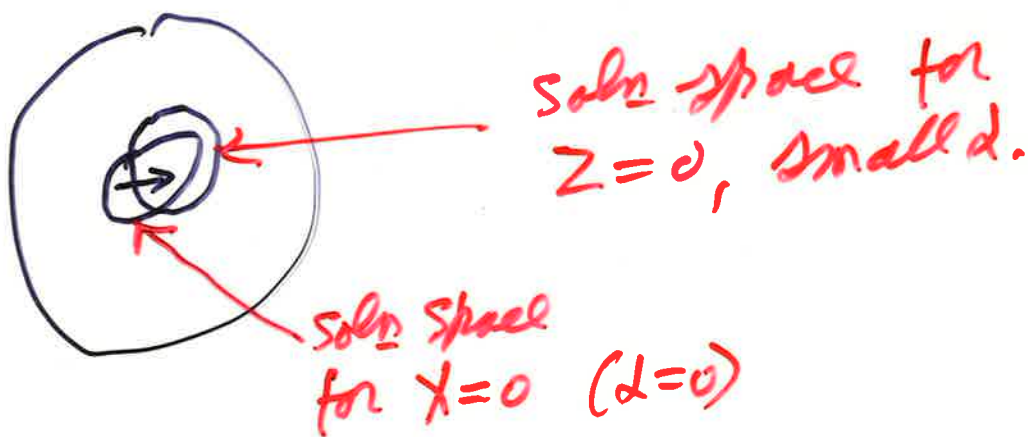 soln space for
Z=0, small α.
soln space
for X=0 (α=0)